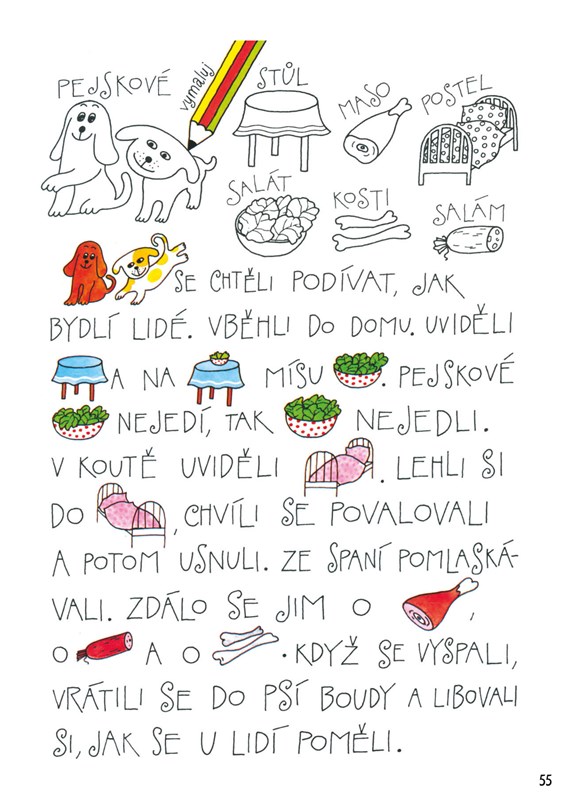 PEJSKOVÉ
vymaluj
STŮL
MASO
POSTEL
SALÁT
KOSTI
SALÁM
SE CHTĚLI PODÍVAT, JAK
BYDLÍ LIDÉ. VBĚHLI DO DOMU. UVIDĚLI
A NA MÍSU . PEJSKOVÉ
NEJEDÍ, TAK NEJEDLI.
V KOUTĚ UVIDĚLI . LEHLI SI
DO , CHVÍLI SE POVALOVALI
A POTOM USNULI. ZE SPANÍ POMLASKÁ-
VALI. ZDÁLO SE JIM O ,
O A O . KDYŽ SE VYSPALI,
VRÁTILI SE DO PSÍ BOUDY A LIBOVALI
SI, JAK SE U LIDÍ POMĚLI.
55